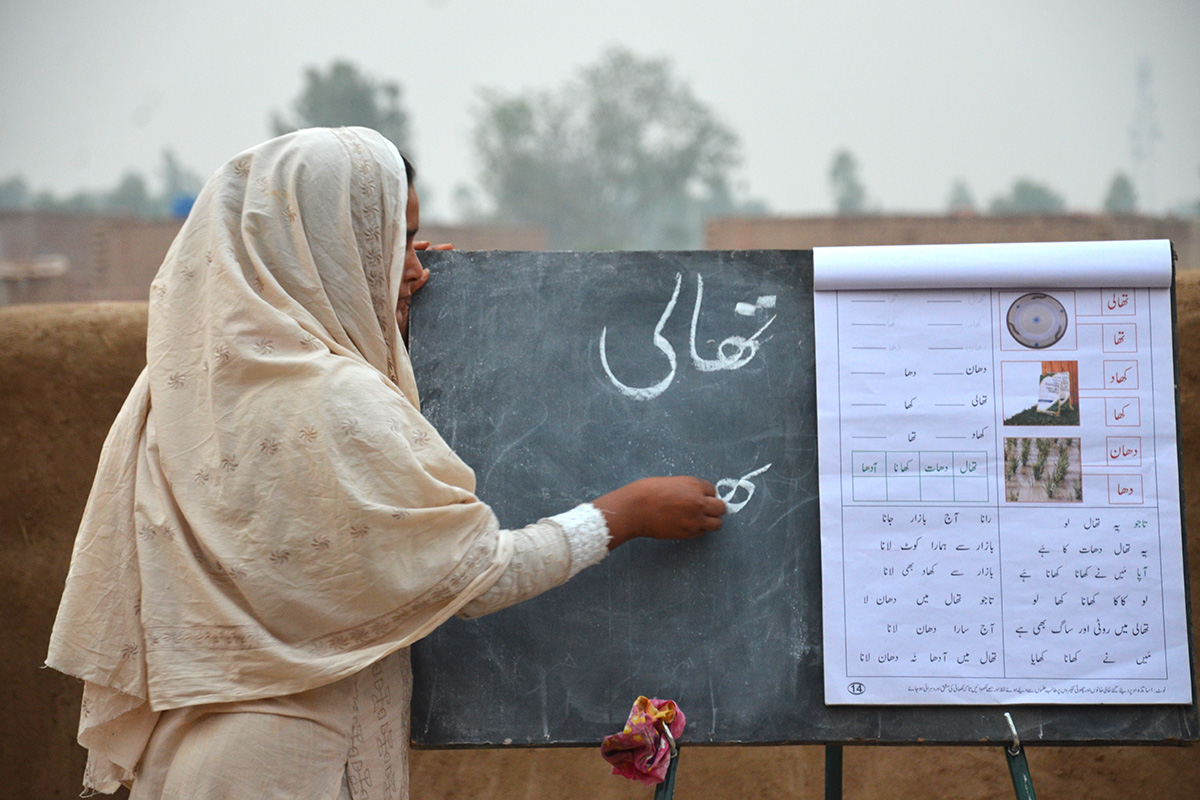 تھالی
بھ
تھالی
تھا
کھاد
کھا
دھان
دھا
دھان ــــــ دھا ــــــ
تھالی ــــــ کھا ــــــ
کھاد ــــــ تھا ــــــ
تھال دھات کھانا آدھا
تاجو یہ تھال لو
یہ تھال دھات کا ہے
آپا مَیں نے کھانا کھانا ہَے
لو کاکا کھانا کھا لو
تھالی میں روٹی اور ساگ بھی ہے
مَیں نے کھانا کھایا
رانا آج بازار جانا
بازار سے ہمارا کوٹ لانا
بازار سے کھاد بھی لانا
تاجو تھال میں دھان لا
آج سارا دھان لانا
تھال میں آدھا نہ دھان لانا
14